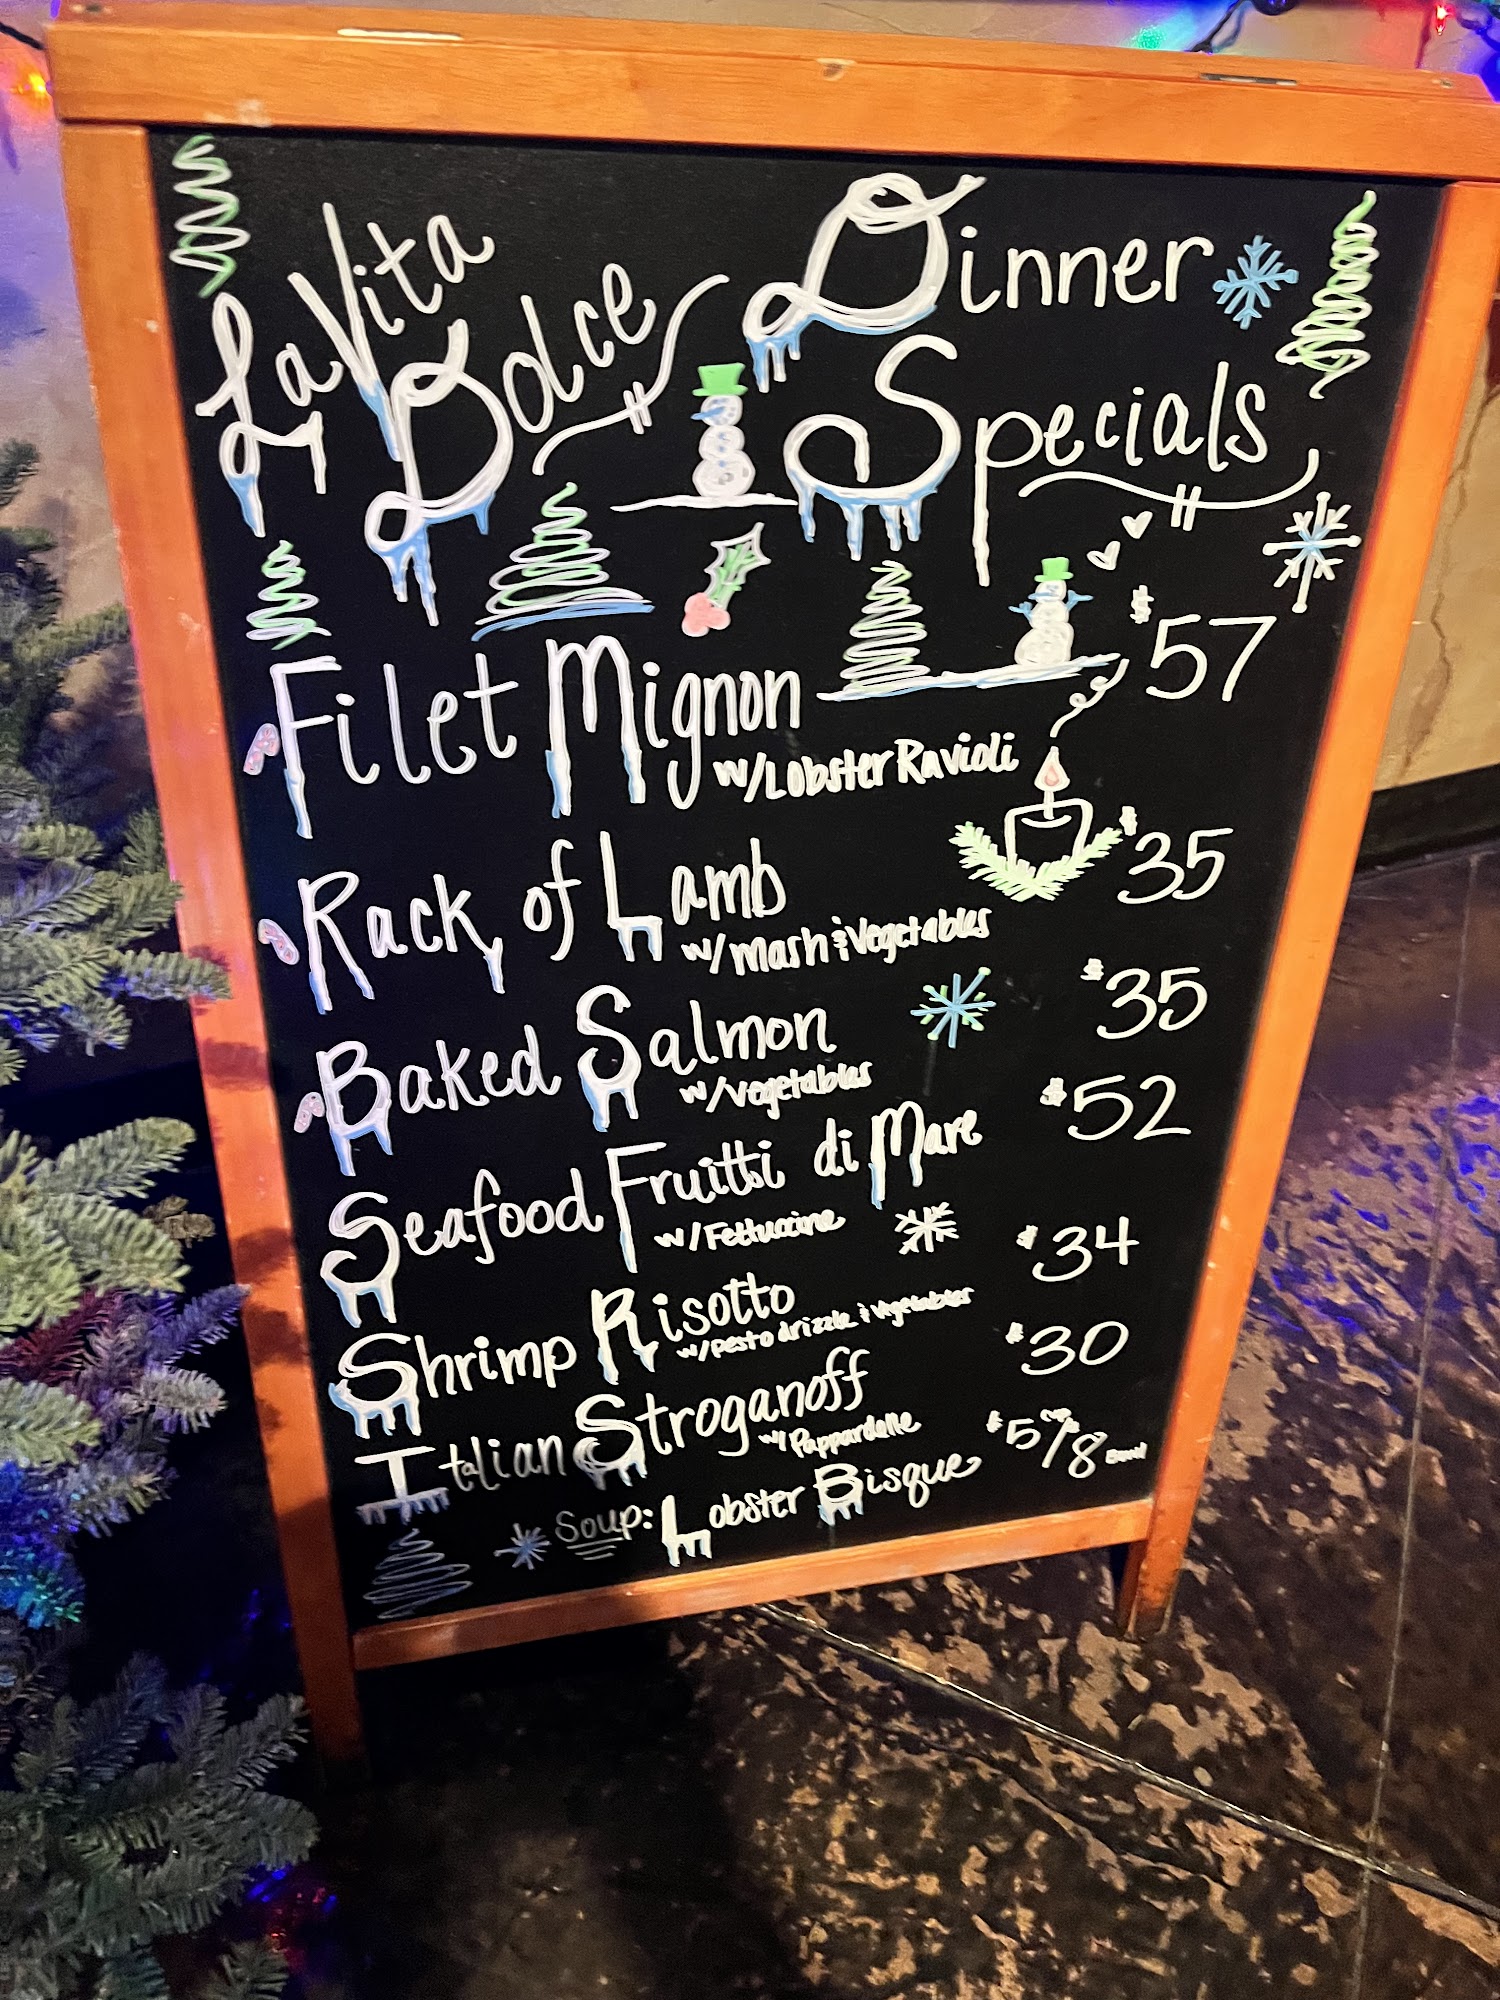 La Vita Dolce
Dinner Specials
Filet Mignon $57
w/Lobster Ravioli
Rack of Lamb $35
w/mash & Vegetables
Baked Salmon $35
w/vegetables
Seafood Fruitti di Mare $52
w/Fettuccine
Shrimp Risotto $34
w/pesto drizzle & vegetables
Italian Stroganoff $30
w/ Pappardelle
Soup: Lobster Bisque $5 cup/8 Bowl